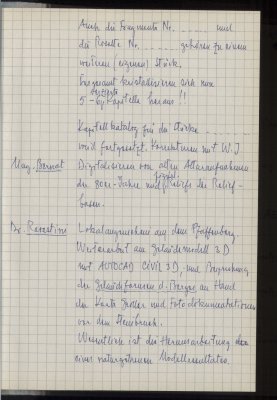 Auch die Fragmente Nr. ______ und
die Rosette Nr. ______ gehören zu einem
weiteren (eigenen) Stück.
Insgesamt kristallisieren sich nun
5 - Kapitelle heraus!!
Kapitellkatalog für die Stücke ______
wird fortgesetzt. Korrekturen mit W.J.
Mag. Digitalisieren von alten Altaraufnahmen
der 80er-Jahre und der Relief-
basen.
Dr. Lokalaugenschein auf dem Pfaffenberg.
Weiterarbeit am Geländemodell 3D
mit AUTOCAD CIVIL 3D, und Besprechung
der Geländeformen d. Berges an Hand
der Karte und Fotodokumentationen
vor dem Steinbruch.
Wesentlich ist die Herausarbeitung
eines naturgetreuen Modellresultates.